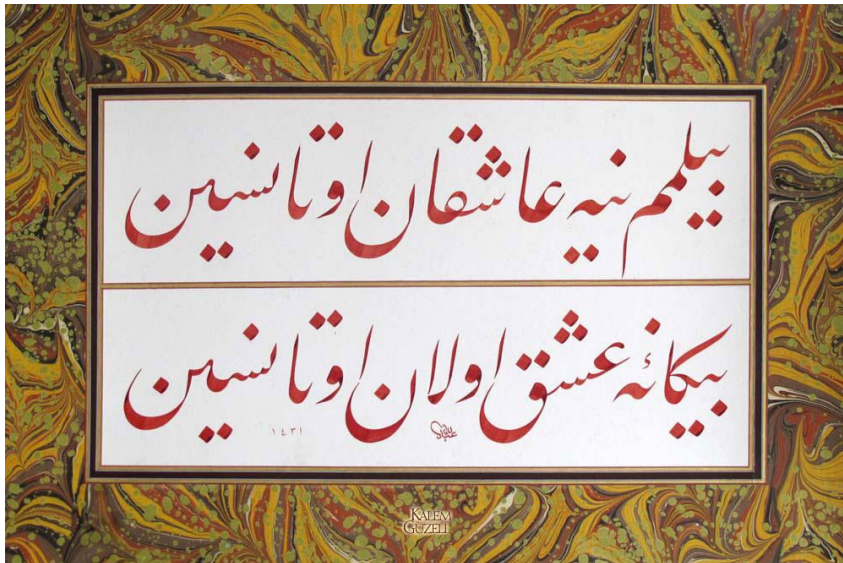 بیلمم نیه عاشقان اوتانسین
بیکانهٔ عشق اولان اوتانسین
١٤٣١
KALEM
GÜZELİ